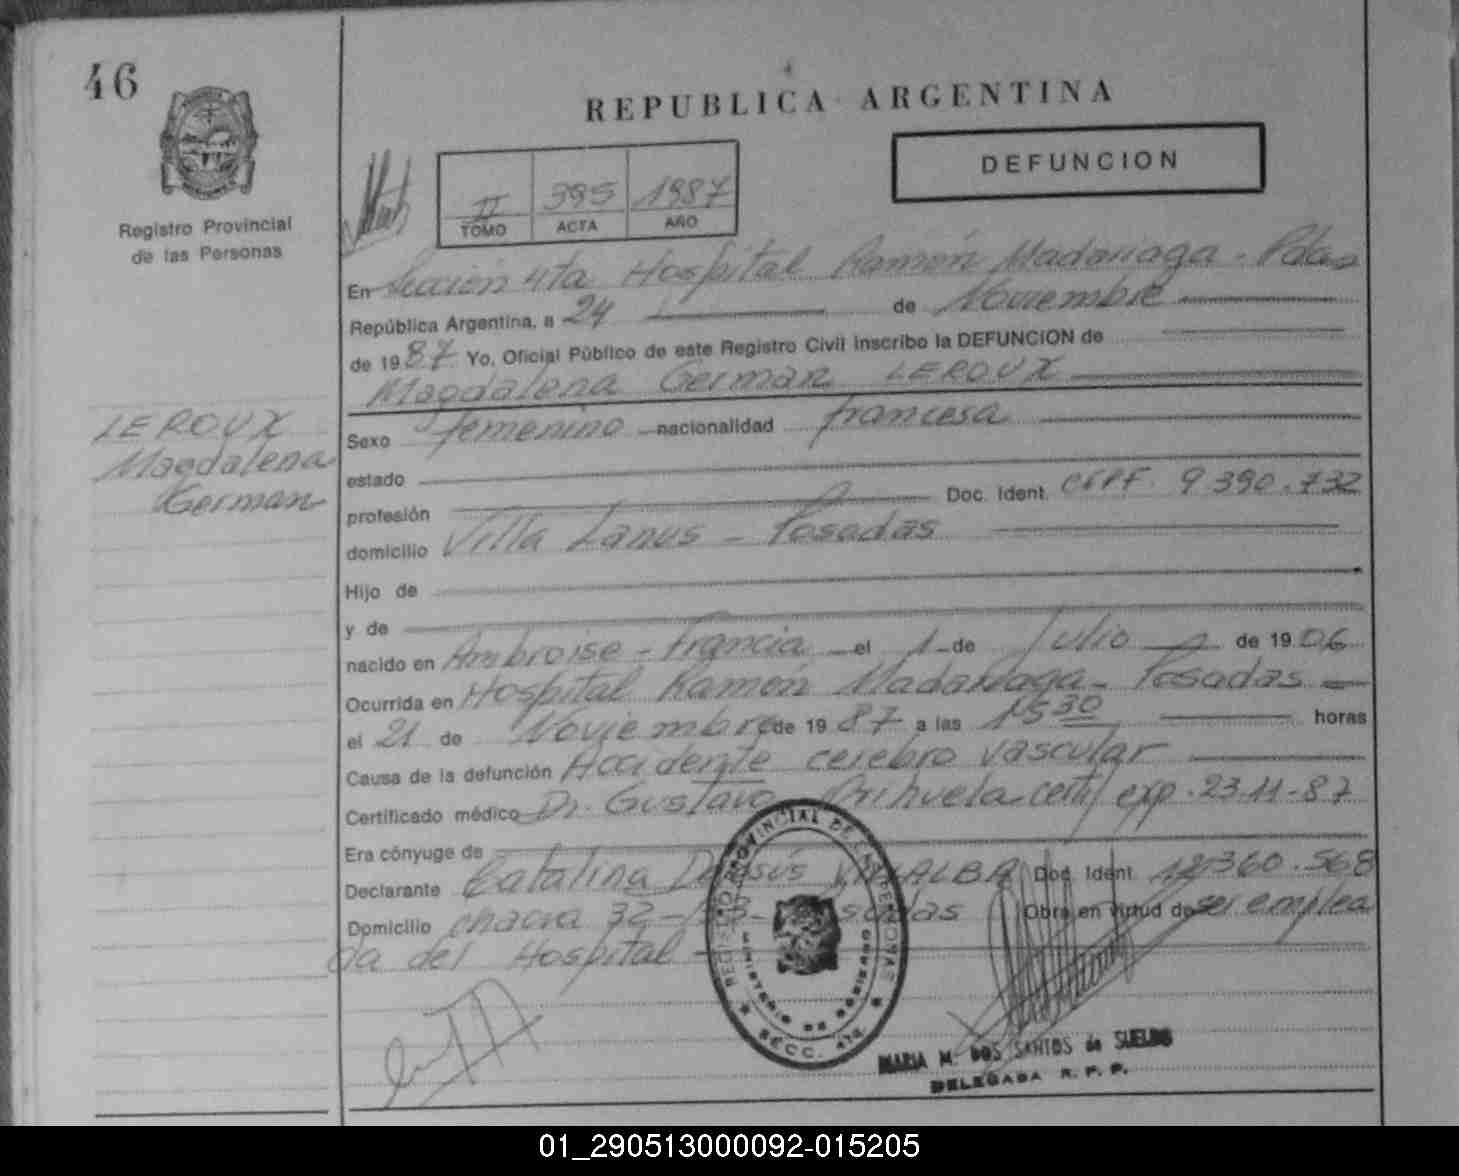 46
REPUBLICA ARGENTINA
DEFUNCION
Registro Provincial
de las Personas
II 395 1987
TOMO ACTA AÑO
En Sección 4ta Hospital Ramón Madariaga - Pdas
República Argentina, a 24 de Noviembre
de 1987 Yo, Oficial Público de este Registro Civil inscribo la DEFUNCION de
Magdalena German LEROUX
LEROUX
Magdalena
German
Sexo femenino nacionalidad francesa
estado
profesión Doc. Ident. 9390.732
domicilio Villa Lanus - Posadas
Hijo de
y de
nacido en Ambroise - Francia el 1 de Julio de 1906
Ocurrida en Hospital Ramón Madariaga - Posadas
el 21 de Noviembre de 1987 a las 1530 horas
Causa de la defunción Accidente cerebro vascular
Certificado médico Dr. Gustavo Orihuela certif exp. 23-11-87
Era cónyuge de
Declarante Catalina VILLALBA Doc. Ident. 12.360.568
Domicilio chacra 32-33- Posadas Obra en virtud de ser emplea
da del Hospital
REGISTRO PROVINCIAL DE LAS PERSONAS
MINISTERIO DE GOBIERNO
SECC. 4ta.
MARIA M. DOS SANTOS de SUELDO
DELEGADA R. P. P.
01_290513000092-015205